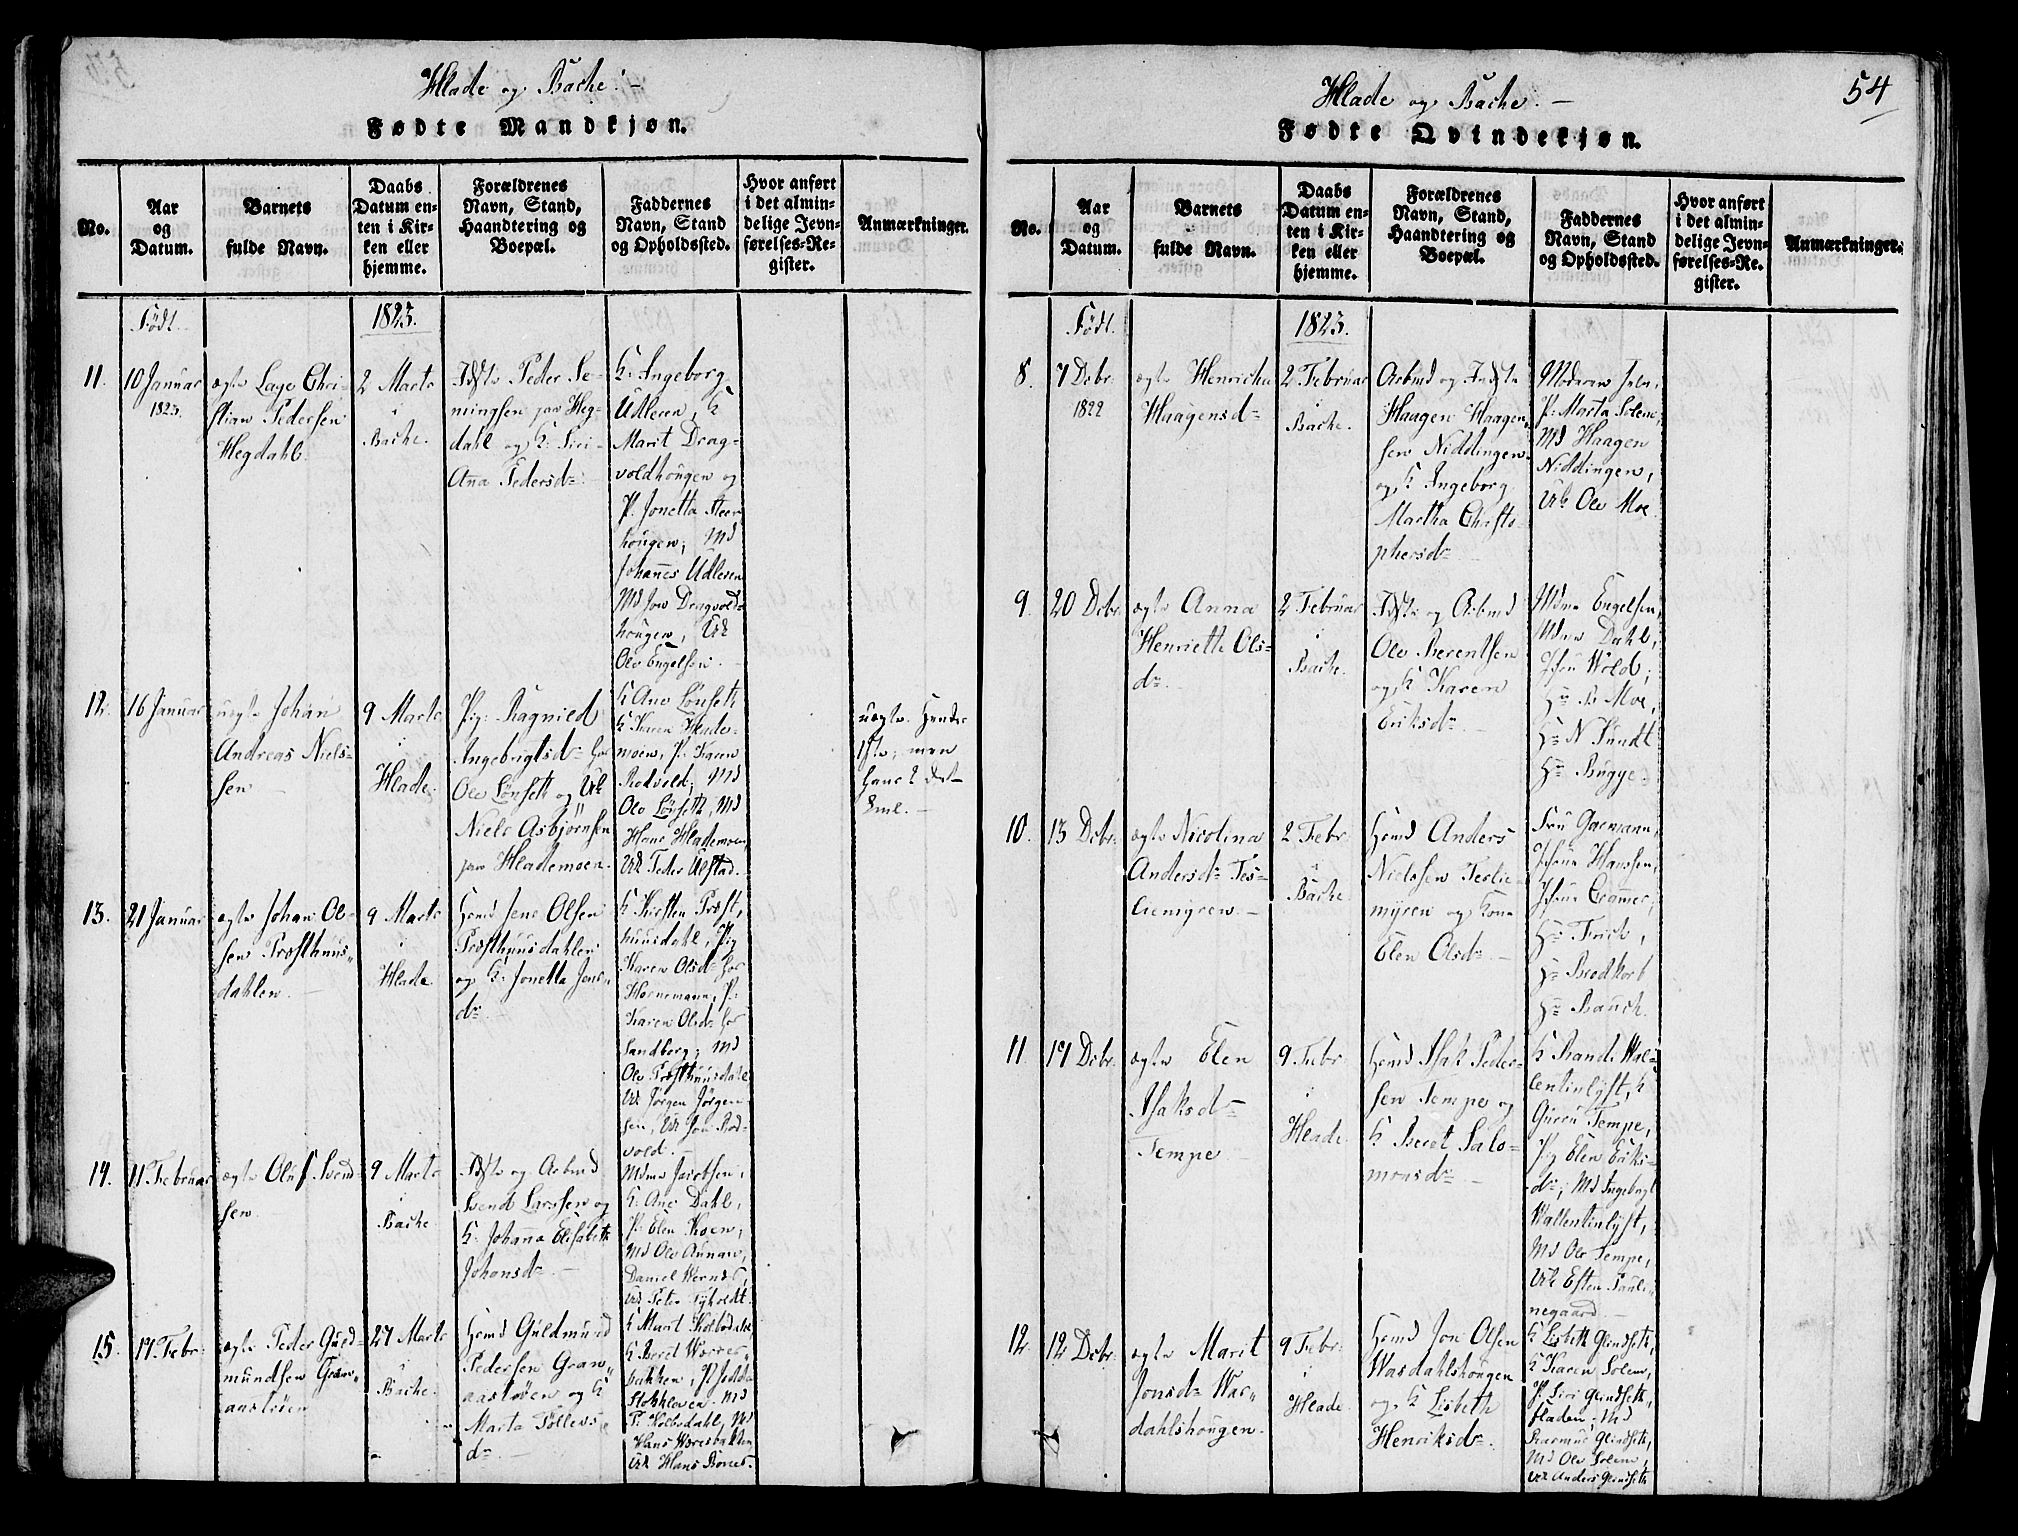 Hlade og Bache. –
Fødte Mandkjøn.
No.
Aar
og
Datum.
Barnets
fulde Navn.
Daabs
Datum en-
ten i Kir-
ken eller
hjemme.
Forældrenes
Navn, Stand,
Haandtering og
Boepæl.
Faddernes
Navn, Stand
og Opholdssted.
Hvor anført
i det almin-
delige Jevn-
førelses-Re-
gister.
Anmærkninger.
Født
1823.
11.
10 Januar
1823.
ægte Lage Chri-
stian Pedersen
Hegdahl.
2 Marts
i
Bache.
Indste Peder He-
mingsen paa Heg-
dahl og K: Siri
Ana Pedersdr
K: Ingeborg
Udleren, K
Marit Drag-
voldhougen og
P. Jonetta Steer
hougen; Md
Johannes Udleren
Md Jon Dragvolds
hougen, Uk
Ole Engelsen.
12.
16 Januar
uægte Johan
Andreas Niels-
sen
9 Marts
i
Hlade.
Pig: Ragnild
Ingebrigtsdr hos
Ole Lønseth og Uk
Niels Asbjørnsen
paa Hlademoen.
K Ane Lønseth
K Karen Hlade-
moen, P. Karen
Rotvold; Md
Ole Lønseth, Md
Hans Hlademoen
Uk Peder Ulstad.
uægte. Hendes
1ste; men
hans 2det
Eml.
13.
21 Januar
ægte Johan Ol-
sen Præsthuus-
dahlen.
9 Marts
i
Hlade
Hmd Jens Olsen
Præsthuusdahlen
og K: Jonetta Jens-
dr
K Kirsten Præst-
huusdahl, Pig
Karen Olsdr hos
Hornemann, P:
Karen Olsdr hos
Sandborg; Md
Ole Præsthuusdahl
Uk Jørgen Jørgen-
sen, Uk Jon Rod-
vold.
14.
11 Februar
ægte Oluf Svend-
sen
9 Marts
i
Bache.
Indste og Arbmd
Svend Larssen og
K. Johanna Elisabeth
Johansdr
Mdme Jacobsen,
K: Ane Dahl,
P: Elen Koen;
Md Ole Aunan,
Daniel Werner,
Uk Peter Tyholdt.
15.
17 Febr:
ægte Peder Guld-
mundsen Gran-
aasløen
27 Marts
i
Bache.
Hmd Guldmund
Pedersen Gran-
aasløen og K
Marta Tollevs-
dr
K Marit Kolbsdahl
K Beret Worres-
bakken, P
Stokkleven. Md
P: Kolbsdahl, Md
Hans Woresbakken
Uk Hans Rones.
Hlade og Bache. –
54
Fødte Qvindekjøn.
No.
Aar
og
Datum.
Barnets
fulde Navn.
Daabs
Datum en-
ten i Kir-
ken eller
hjemme.
Forældrenes
Navn, Stand,
Haandtering og
Boepæl.
Faddernes
Navn, Stand
og Opholdssted.
Hvor anført
i det almin-
delige Jevn-
førelses-Re-
gister.
Anmærkninger.
Født.
1823.
8.
7 Debr.
1822
ægte Henricha
Haagensdr
2 Februar
i
Bache.
Arbmd og Indste
Haagen Haagen-
sen Niddingen
og K Ingeborg
Martha Christo-
phersdr
Moderen
P: Marta Solem,
Md Haagen
Niddingen,
Uk Ole Moe
9.
20 Debr.
ægte Anna
Henriette Ols-
dr
2 Februar
i
Bache.
Indste og Arbmd
Ole Berentsen
og K Karen
Eriksdr
Mdme Engelsen,
Mdme Dahl,
Jfru Wold;
Hr B Moe,
Hr N Pundt
Hr Bugge.
10.
13 Debr.
ægte Nicolina
Andersdr Tes-
liemyren. –
2 Febr.
i
Bache
Hmd Anders
Nielssen Teslie-
myren og Kone
Elen Olsdr
Fru Garmann,
Jfrue Hanssen,
Jfrue Cramer,
Hr Frich,
Hr Brodkorb
Hr Bauck.
11.
17 Debr.
ægte Elen
Isaksdr
Tempe
9 Febr.
i
Hlade.
Hmd Isak Peder-
sen Tempe og
K Beret Salo-
monsdr
K Rande Wal-
lentinlyst, K
Guru Tempe,
Pig Elen Eriks-
dr; Md Ingebrigt
Wallentinlyst,
Md Ole Tempe,
Uk Esten Pauli-
negaard.
12
12 Debr.
ægte Marit
Jonsdr War-
dahlshougen.
9 Febr:
i
Hlade.
Hmd Jon Olsen
Wasdahlshougen
og K Lisbeth
Henriksdr.
K Lisbeth Glindseth,
K Karen Solem,
P. Siri Glindseth,
Hladen; Md
Rasmus Glindseth,
Md Ole Solem,
Uk Anders Glindseth